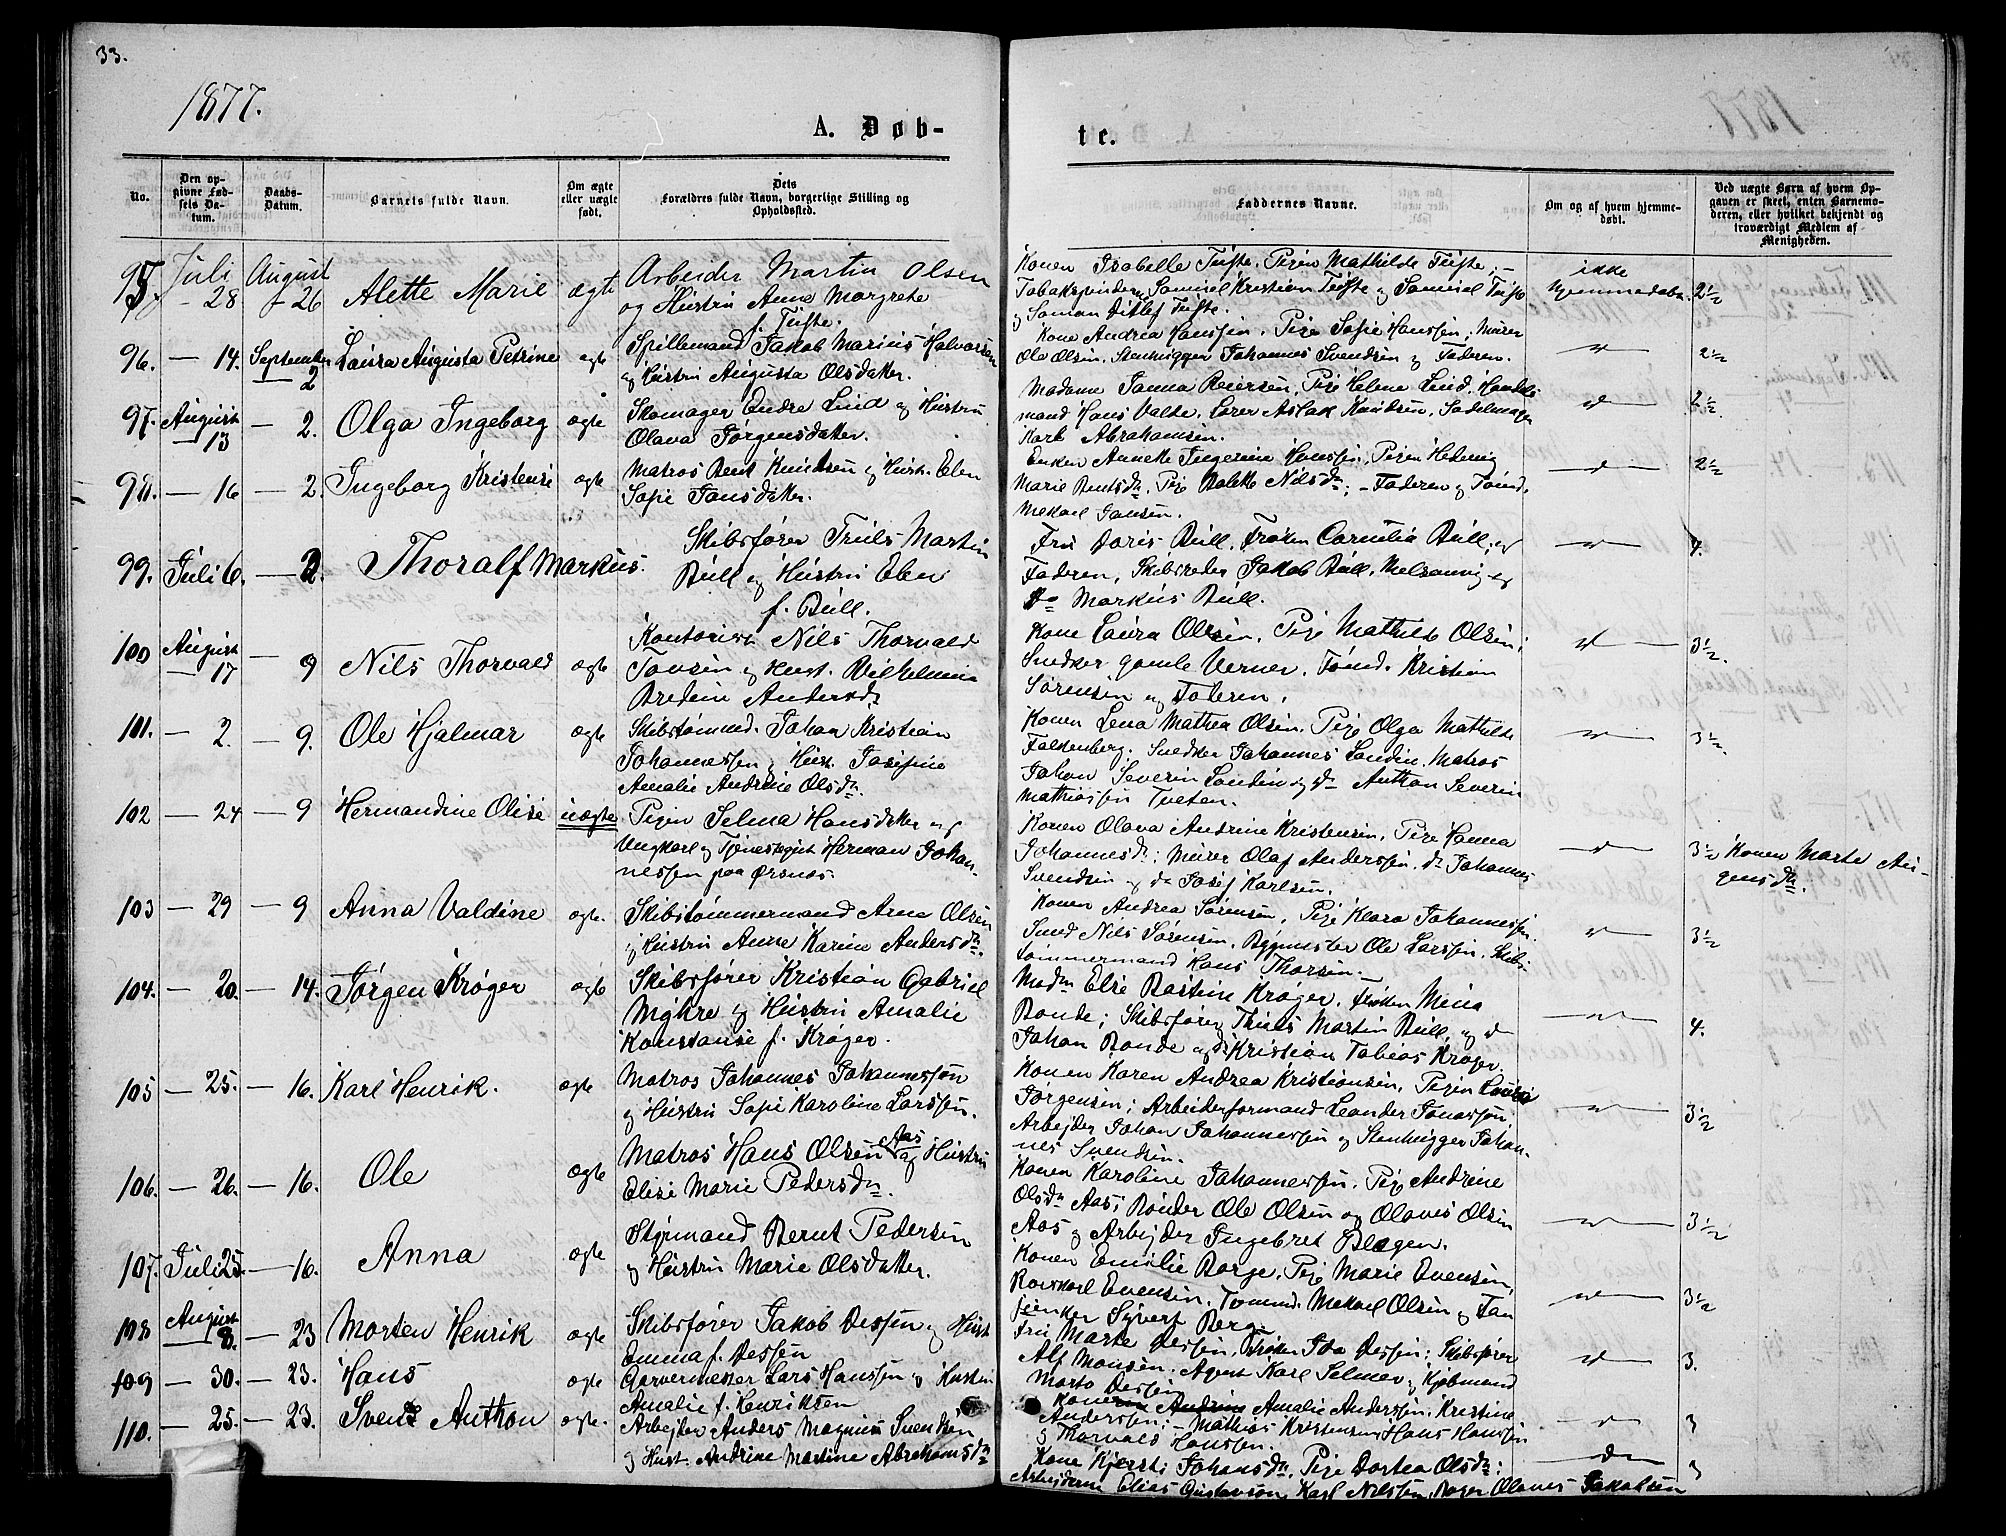 33.
1877.
A. Døb-
No.
Den op-
givne Fød-
sels Da-
tum.
Daabs-
Datum.
Barnets fulde Navn.
Om ægte
eller uægte
født.
Dets
Forældres fulde Navn, borgerlige Stilling og
Opholdssted.
95 Juli August
28 26 Alette Marie ægte Arbeider Martin Olsen
og Hustru Anne Margrete
f. Tufte.
96. — 14. September 2 Laura Augusta Petrine ægte Spillemand Jakob Marius Halvorsen
og Hustru Augusta Olsdatter.
97. August 13 — 2. Olga Ingeborg ægte Skomager Endre Lind og Hustru
Olava Jørgensdatter.
98. — 16 — 2. Ingeborg Kristense ægte Matros Bent Knudsen og Hust. Elen
Sofie Jansdatter.
99. Juli 6. — 2. Thoralf Markus. Skibsfører Truls Martin
Bull og Hustru Elen
f. Bull.
100 August 17 — 9 Nils Thorvald ægte Kontorist Nils Thorvald
og Hust. Vilhelmine
Andersdn
101. — 2. — 9. Ole Hjalmar ægte Skibstømmd. Johan Kristian
Johannessen og Hust. Josefine
Amalie Andrine Olsdn.
102 — 24 — 9 Hermandine Olise uægte Pigen Selma Hansdatter og
Ungkarl og Tjenestegut Herman Johan-
nessen paa Ørsnæs.
103 — 29 — 9 Anna Valdine ægte. Skibstømmermand Arne Olsen
og Hustru Anne Karine Andersdn.
104. — 20. — 14. Jørgen Krøger ægte Skibsfører Kristian Gabriel
og Hustru Amalie
Konstanse f. Krøger.
105 — 25. — 16. Karl Henrik. ægte Matros Johannes Johannessøn
og Hustru Sofie Karoline Larssen.
106. — 26. — 16. Ole ægte Matros Hans Olsen Aas og Hustru
Elise Marie Pedersdn.
107. Juli 25. — 16. Anna ægte Styrmand Bernt Pedersen
og Hustru Marie Olsdatter.
108 August 8. — 23 Morten Henrik ægte Skibsfører Jakob Dessen og Hust
Emma f. Dessen
109 — 30. — 23. Hans ægte Garvermester Lars Hanssen og Hustru
Amalie f. Henriksen
110. — 25. — 23. Svend Anthon ægte. Arbejder Anders Magnus Svendsen
og Hust. Andrine Martine Abrahamsdn
te.
Faddernes Navne.
Om og af hvem hjemme-
døbt.
Ved uægte Børn af hvem Op-
gaven er skeet, enten Barnemo-
deren, eller hvilket bekjendt og
troværdigt Medlem af
Menigheden.
Konen Isabelle Tufte, Pigen Mathilde Tufte; — ikke
Tobakspinder Samuel Kristian Tufte og Samuel Tufte hjemmedøbt. 2½
og Saman Ditlef Tufte.
Kone Andrea Hanssen. Pige Sofie Hanssen, Murer
Ole Olsen. Stenhugger Johannes Svendsen og Faderen. 2½
Madame Janna Reiersen, Pige Helene Lind. Handels
mand Hans Valle. Lærer Aslak Knudsen. Sadelmager 2½
Karl Abrahamsen.
Enken Annette Hanssen, Pigen Hedevig
Marie Bentsdn. Pige Bolette Nilsdn; — Faderen og Tømd. 2½
Mekael Jansen.
Fru Doris Bull. Frøken Cornelia Bull, og
Faderen, Skibsreder Jakob Bull, Melsomvig og 4.
do Markus Bull.
Kone Laura Olsen. Pige Mathilde Olsen;
Snedker gamle Verner, Tømd. Kristian 3½.
Sørensen og Faderen.
Konen Lena Mathea Olsen. Pige Olga Mathilde
Falkenberg. Snedker Johannes Lundin. Matros 3½.
Johan Severin Lundin og do Anthon Severin
Mathiassen Tveten.
Konen Olava Andrine Kristensen. Pige Hanna
Johannesdn; Murer Olaf Anderssen. do Johannes 3½ Konen Marte Au-
Svendsen og do Josef Karlsen. gensdn.
Konen Andrea Sørensen, Pige Klara Johannessen.
Smed Nils Sørensen. Bygmester Ole Larssen. Skibs- 3½
tømmermand Hans Thorsen. —
Madm Else Bastine Krøger, Frøken Mina
Bonde; Skibsfører Truls Martin Bull, og do 4.
Johan Bonde og do Kristian Tobias Krøger.
Konen Karen Andrea Kristiansen, Pigen Lovise
Jørgensen; Arbeiderformand Leander Jonassøn; 3½
Arbejder Johan Johannessen og Stenhugger Johan-
nes Svendsen.
Konen Karoline Johannessen. Pige Andrine
Olsdn Aas; Bønder Ole Olsen og Olaves Olsen 3½
Aas og Arbejder Ingebret Blegen.
Konen Emilie Borge. Pige Marie Evensen,
Evensen. Tømmd. Mekael Olsen og 3½
Syvert Berg.
Fru Marte Dessen, Frøken Ida Dessen; Skibsfører
Alf Monsen; Agent Karl Selmer og Kjøbmand 3.
Marto Dessen
Konen Amalie Anderssen. Kristine
Anderssen; — Mathias Kristensen og Hans Hanssen 3
og Thorvald Hanssen.
Kone Kjersti Johansdn, Pige Dortea Olsdn: 3
Arbejderne Elias Gustavson, Karl Nilssen, Olaves Jakobsen